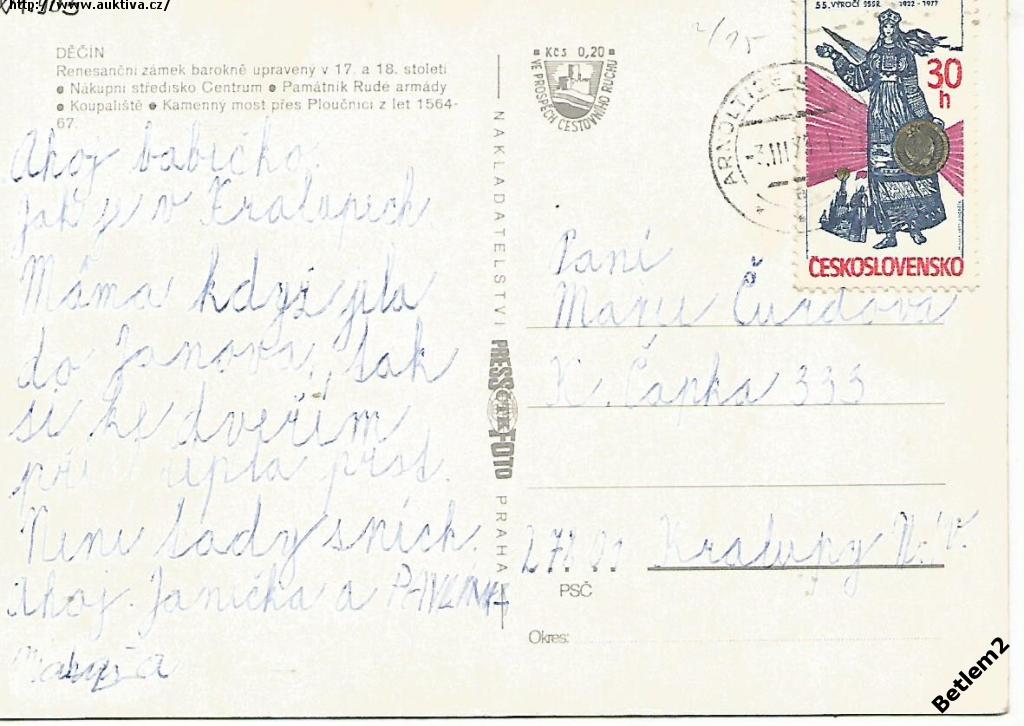 http://www.auktiva.cz/
DĚČÍN
Renesanční zámek barokně upravený v 17. a 18. století
● Nákupní středisko Centrum ● Památník Rudé armády
● Koupaliště ● Kamenný most přes Ploučnici z let 1564-
67.
Ahoj babičko.
Jak je v Kralupech
Máma když jela
do Janova, tak
si ke dveřím
prst.
Neni tady sních.
Ahoj. Janička a PAVLÍNA
NAKLADATELSTVÍ PRESSFOTO PRAHA
Kčs 0,20
VE PROSPĚCH CESTOVNÍHO RUCHU
2/95
ARNOLTICE
55. VÝROČÍ SSSR 1922-1977
30
h
ČESKOSLOVENSKO
Paní
Marie Čurdová
K. Čapka 333
278 01 Kralupy N. V.
PSČ
Okres:
Betlem2